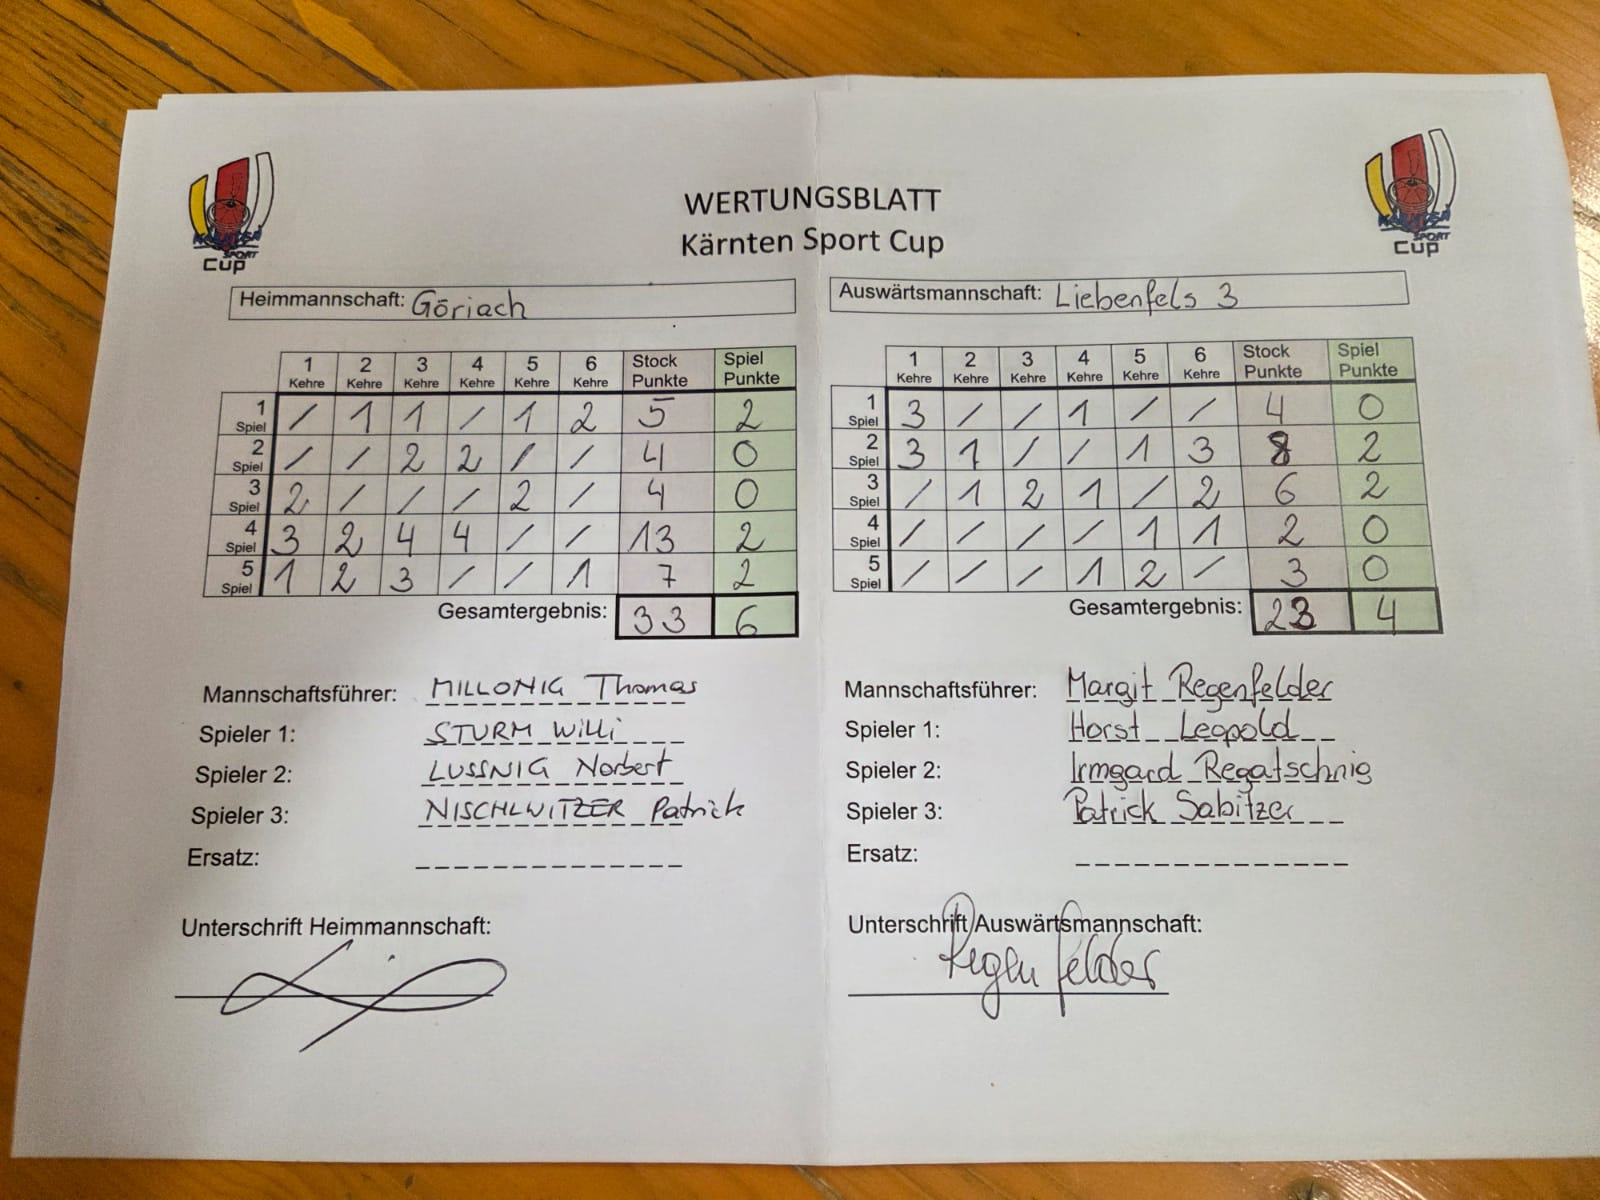 KÄRNTEN SPORT Cup
KÄRNTEN SPORT Cup
WERTUNGSBLATT
Kärnten Sport Cup
Heimmannschaft: Göriach
1 Kehre 2 Kehre 3 Kehre 4 Kehre 5 Kehre 6 Kehre Stock Punkte Spiel Punkte
1 Spiel / 1 1 / 1 2 5 2
2 Spiel / / 2 2 / / 4 0
3 Spiel 2 / / / 2 / 4 0
4 Spiel 3 2 4 4 / / 13 2
5 Spiel 1 2 3 / / 1 7 2
Gesamtergebnis: 33 6
Mannschaftsführer: MILLONIG Thomas
Spieler 1: STURM Willi
Spieler 2: LUSSNIG Norbert
Spieler 3: NISCHLWITZER Patrick
Ersatz:
Unterschrift Heimmannschaft:
Auswärtsmannschaft: Liebenfels 3
1 Kehre 2 Kehre 3 Kehre 4 Kehre 5 Kehre 6 Kehre Stock Punkte Spiel Punkte
1 Spiel 3 / / 1 / / 4 0
2 Spiel 3 1 / / 1 3 8 2
3 Spiel / 1 2 1 / 2 6 2
4 Spiel / / / / 1 1 2 0
5 Spiel / / / 1 2 / 3 0
Gesamtergebnis: 23 4
Mannschaftsführer: Margit Regenfelder
Spieler 1: Horst Leopold
Spieler 2: Irmgard Regatschnig
Spieler 3: Patrick Sabitzer
Ersatz:
Unterschrift Auswärtsmannschaft:
Regenfelder